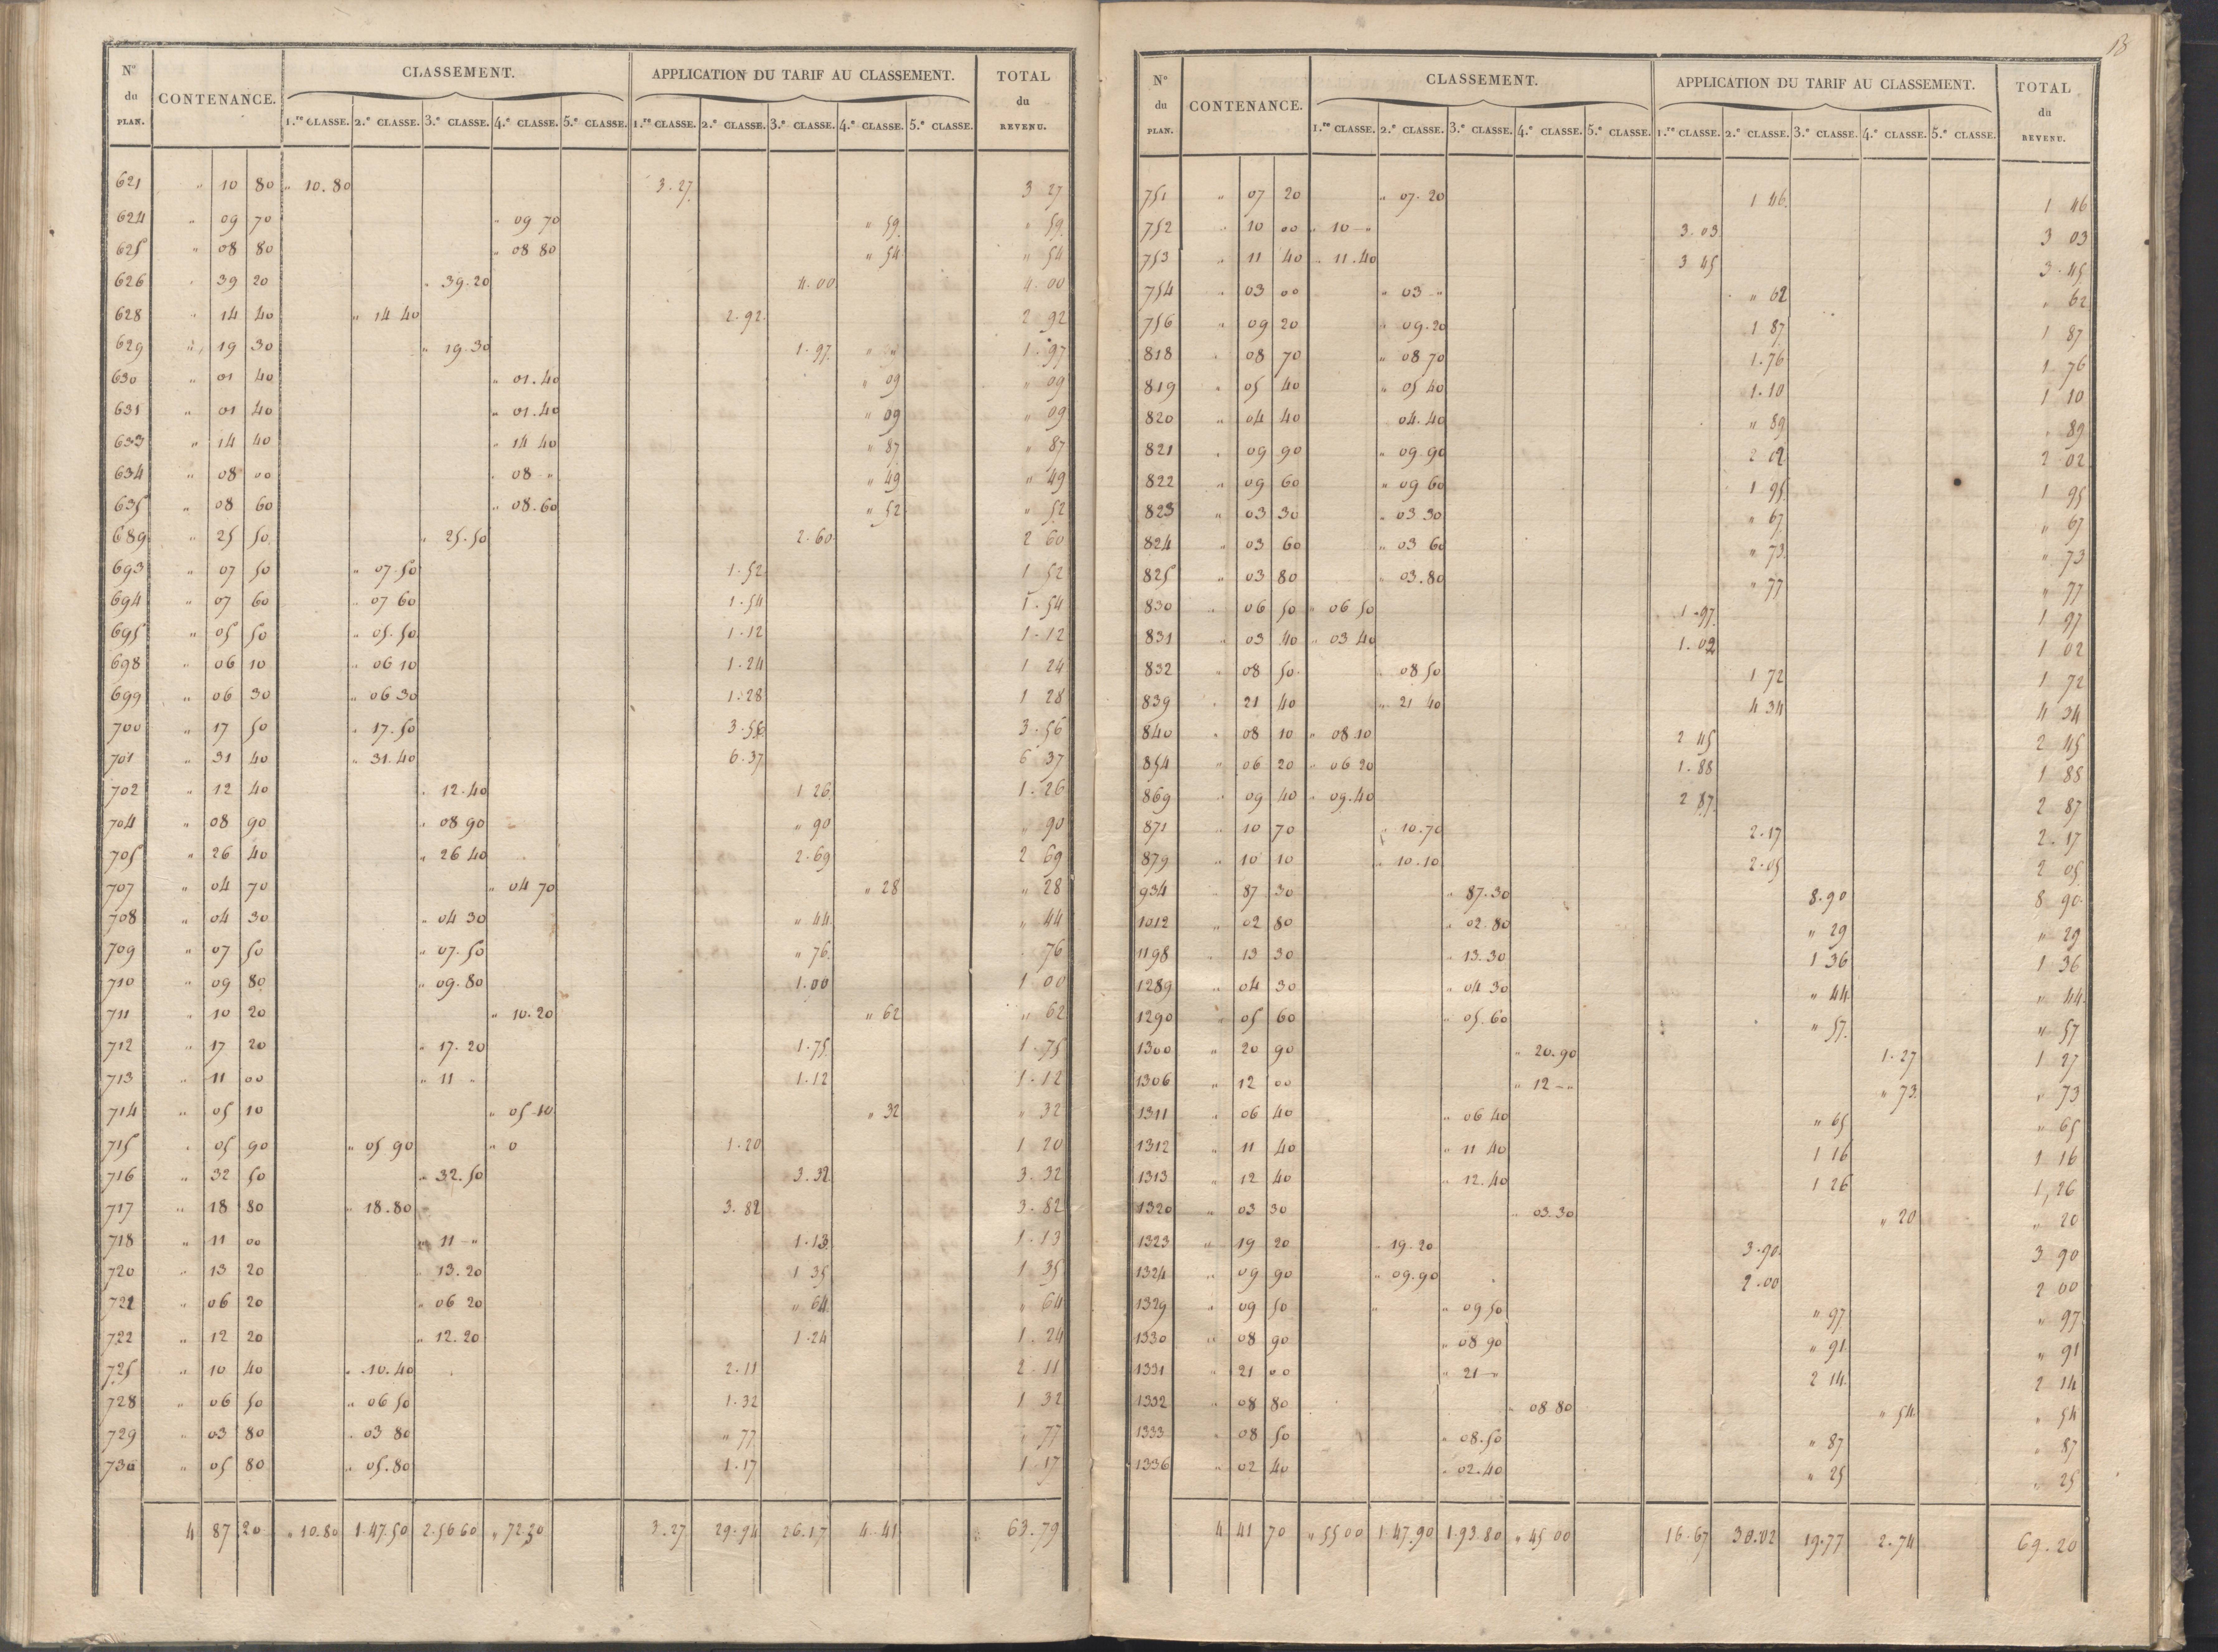 N° du PLAN. CONTENANCE. CLASSEMENT. APPLICATION DU TARIF AU CLASSEMENT. TOTAL du REVENU.
1.re CLASSE. 2.e CLASSE. 3.e CLASSE. 4.e CLASSE. 5.e CLASSE. 1.re CLASSE. 2.e CLASSE. 3.e CLASSE. 4.e CLASSE. 5.e CLASSE.
621 " 10 80 " 10.80 3.27 3 27
624 " 09 70 " 09 70 " 59 " 59
625 " 08 80 " 08 80 " 54 " 54
626 " 39 20 " 39.20 4.00 4.00
628 " 14 40 " 14 40 2.92 2 92
629 " 19 30 " 19.30 1.97 1.97
630 " 01 40 " 01.40 " 09 " 09
631 " 01 40 " 01.40 " 09 " 09
633 " 14 40 " 14 40 " 87 " 87
634 " 08 00 " 08 " " 49 " 49
635 " 08 60 " 08.60 " 52 " 52
689 " 25 50 " 25.50 2.60 2 60
693 " 07 50 " 07.50 1.52 1 52
694 " 07 60 " 07 60 1.54 1.54
695 " 05 50 " 05.50 1.12 1.12
698 " 06 10 " 06 10 1.24 1 24
699 " 06 30 " 06 30 1.28 1 28
700 " 17 50 " 17.50 3.56 3.56
701 " 31 40 " 31.40 6.37 6 37
702 " 12 40 " 12.40 1 26 1.26
704 " 08 90 " 08 90 " 90 " 90
705 " 26 40 " 26 40 2.69 2 69
707 " 04 70 " 04 70 " 28 " 28
708 " 04 30 " 04 30 " 44 " 44
709 " 07 50 " 07.50 " 76 " 76
710 " 09 80 " 09.80 1.00 1 00
711 " 10 20 " 10.20 " 62 " 62
712 " 17 20 " 17.20 1.75 1.75
713 " 11 00 " 11 " 1.12 1.12
714 " 05 10 " 05 10 " 32 " 32
715 " 05 90 " 05 90 " 0 1.20 1 20
716 " 32 50 " 32.50 3.32 3.32
717 " 18 80 " 18.80 3.82 3.82
718 " 11 00 " 11 " 1.13 1.13
720 " 13 20 " 13.20 1 35 1 35
721 " 06 20 " 06 20 " 64 " 64
722 " 12 20 " 12.20 1.24 1.24
725 " 10 40 " 10.40 2.11 2.11
728 " 06 50 " 06 50 1.32 1 32
729 " 03 80 " 03 80 " 77 " 77
730 " 05 80 " 05.80 1.17 1 17
4 87 20 " 10.80 1.47.50 2.56 60 " 72.30 3.27 29.94 26.17 4.41 63.79
13
N° du PLAN. CONTENANCE. CLASSEMENT. APPLICATION DU TARIF AU CLASSEMENT. TOTAL du REVENU.
1.re CLASSE. 2.e CLASSE. 3.e CLASSE. 4.e CLASSE. 5.e CLASSE. 1.re CLASSE. 2.e CLASSE. 3.e CLASSE. 4.e CLASSE. 5.e CLASSE.
751 " 07 20 " 07.20 1 46 1 46
752 " 10 00 " 10 " 3.03 3 03
753 " 11 40 " 11.40 3 45 3.45
754 " 03 00 " 03 " " 62 " 62
756 " 09 20 " 09.20 1 87 1 87
818 " 08 70 " 08 70 1.76 1 76
819 " 05 40 " 05 40 1.10 1 10
820 " 04 40 04.40 " 89 " 89
821 " 09 90 " 09.90 2 02 2 02
822 " 09 60 " 09 60 1 95 1 95
823 " 03 30 " 03 30 " 67 " 67
824 " 03 60 " 03 60 " 73 " 73
825 " 03 80 " 03.80 " 77 " 77
830 " 06 50 " 06 50 1.97 1 97
831 " 03 40 " 03 40 1.02 1 02
832 " 08 50 " 08 50 1 72 1 72
839 " 21 40 " 21 40 4 34 4 34
840 " 08 10 " 08 10 2 45 2 45
854 " 06 20 " 06 20 1.88 1 88
869 " 09 40 " 09.40 2 87 2 87
871 " 10 70 " 10.70 2.17 2.17
879 " 10 10 " 10.10 2.05 2 05
934 87 30 " 87.30 8.90 8 90
1012 " 02 80 " 02.80 " 29 " 29
1198 " 13 30 " 13.30 1 36 1 36
1289 " 04 30 " 04 30 " 44 " 44
1290 " 05 60 " 05.60 " 57 " 57
1300 " 20 90 " 20.90 1.27 1 27
1306 " 12 00 " 12 " " 73 " 73
1311 " 06 40 " 06 40 " 65 " 65
1312 " 11 40 " 11 40 1 16 1 16
1313 " 12 40 " 12.40 1 26 1,26
1320 " 03 30 " 03.30 " 20 " 20
1323 " 19 20 " 19.20 3.90 3 90
1324 " 09 90 " 09.90 2.00 2 00
1329 " 09 50 " " 09 50 " 97 " 97
1330 " 08 90 " 08 90 " 91 " 91
1331 " 21 00 " 21 " 2 14 2 14
1332 " 08 80 " 08 80 " 54 " 54
1333 " 08 50 " 08.50 " 87 " 87
1336 " 02 40 " 02.40 " 25 " 25
4 41 70 " 55 00 1 47.90 1.93.80 " 45 00 16.67 30.02 19.77 2.74 69.20